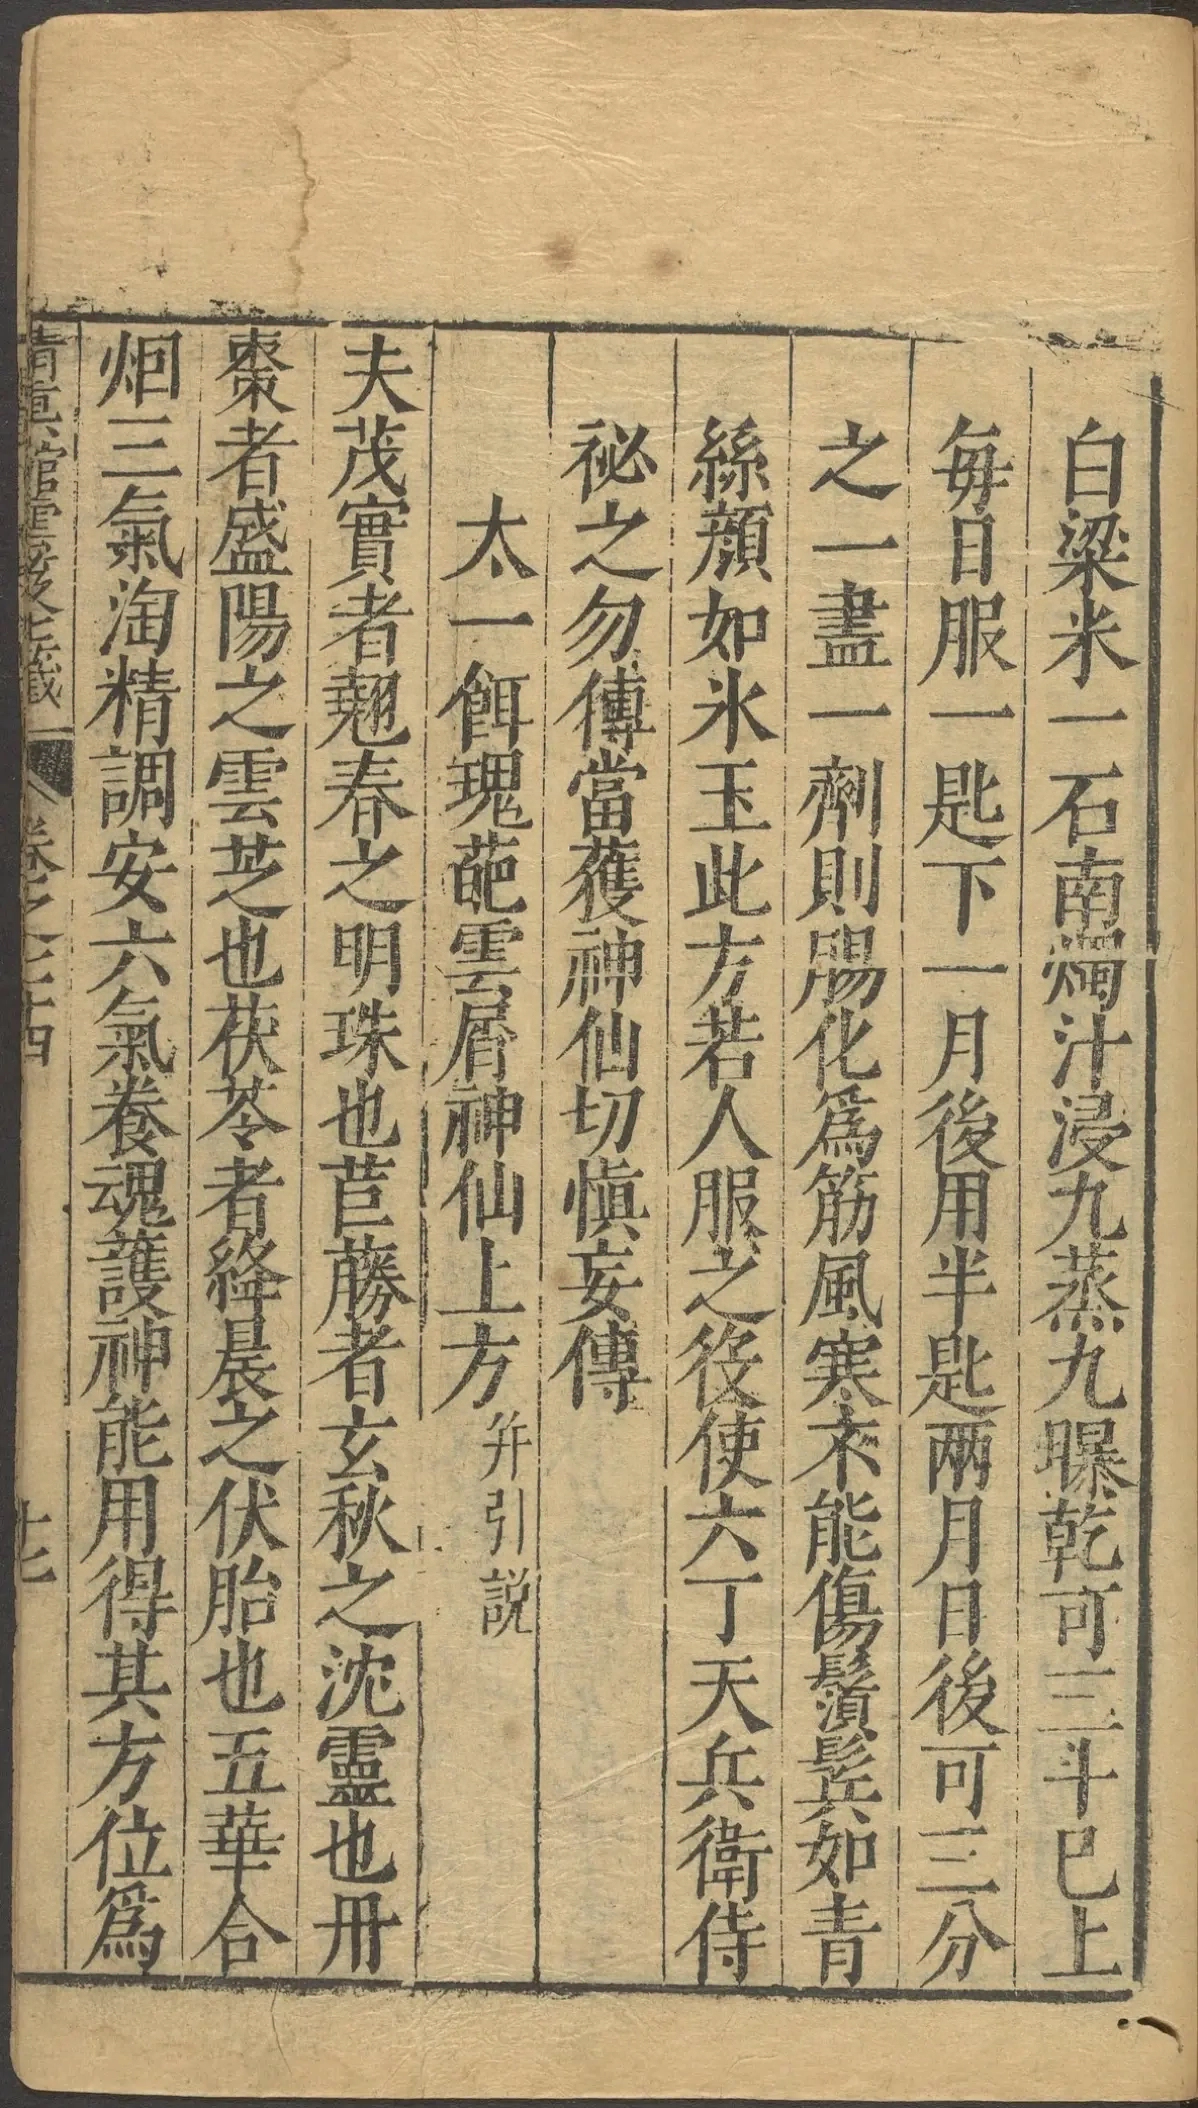 白粱米一石南燭汁浸九蒸九曝乾可三斗巳上
每日服一匙下一月後用半匙兩月日後可三分
之一盡一劑則腸化爲筋風寒不能傷鬚髮如青
絲顏如氷玉此方若人服之役使六丁天兵衛侍
祕之勿傳當獲神仙切慎妄傳
太一餌瑰葩雲屑神仙上方并引説
夫茂實者翹春之明珠也苣蕂者玄秋之沈靈也丹
棗者盛陽之雲芝也茯苓者絳晨之伏胎也五華合
烟三氣淘精調安六氣養魂護神能用得其方位爲
清真館雲笈七籤 卷之七十四 十七